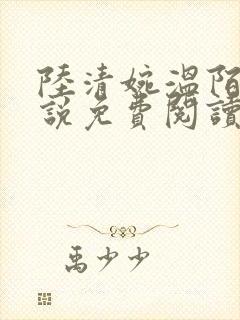 陸清婉溫陌
說免費閱讀
禹少少